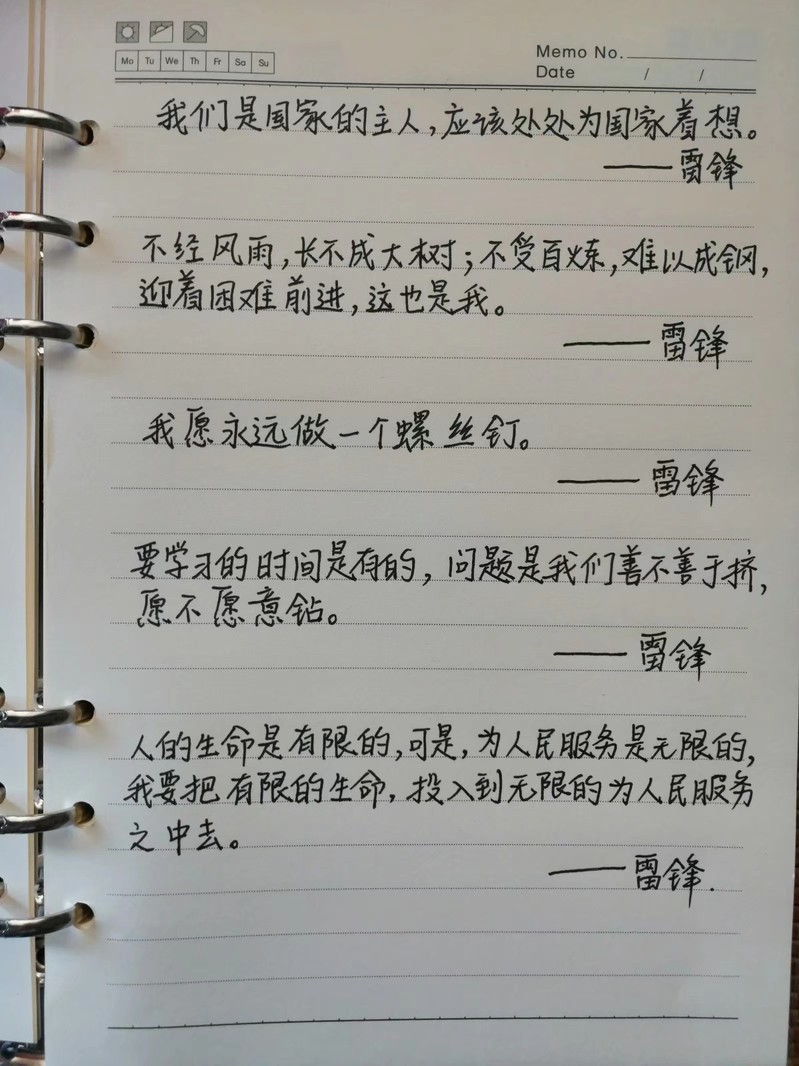 Mo Tu We Th Fr Sa Su
Memo No.
Date / /
我们是国家的主人，应该处处为国家着想。
——雷锋
不经风雨，长不成大树；不受百炼，难以成钢，
迎着困难前进，这也是我。
——雷锋
我愿永远做一个螺丝钉。
——雷锋
要学习的时间是有的，问题是我们善不善于挤，
愿不愿意钻。
——雷锋
人的生命是有限的，可是，为人民服务是无限的，
我要把有限的生命，投入到无限的为人民服务
之中去。
——雷锋.